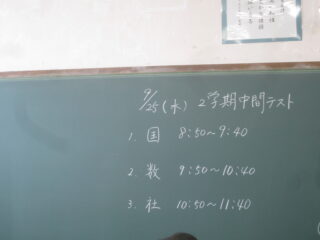 9/25(水) 2学期中間テスト
1. 国 8:50~9:40
2. 数 9:50~10:40
3. 社 10:50~11:40